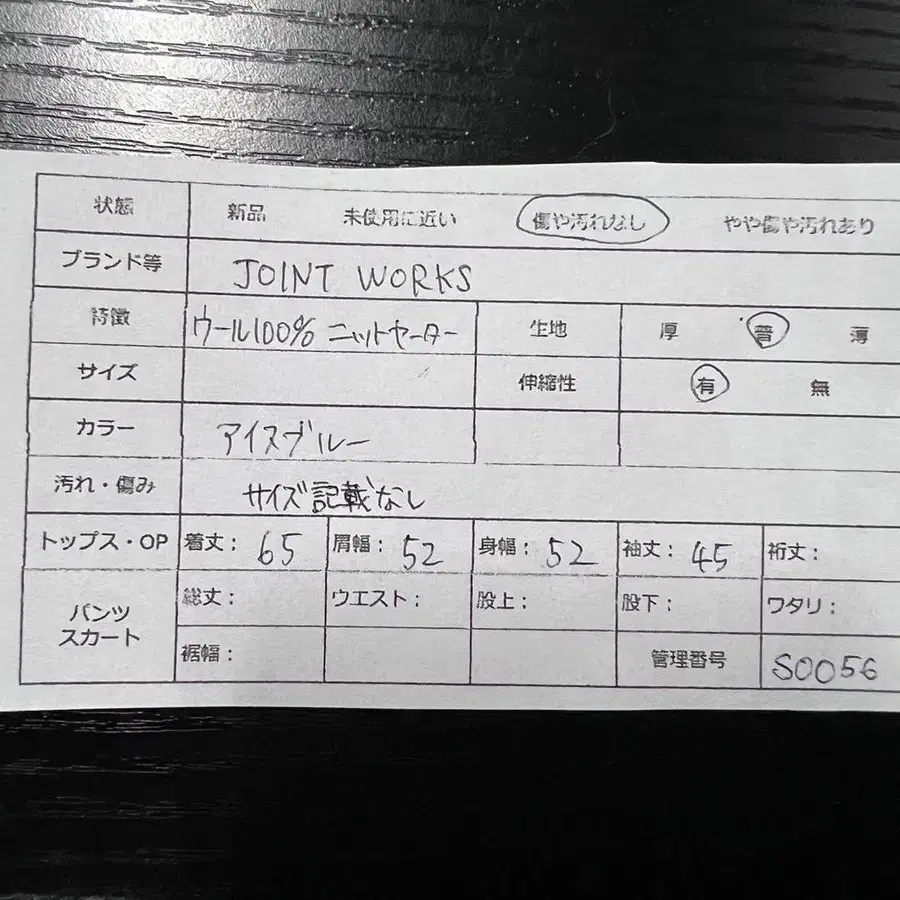 状態 新品 未使用に近い 傷や汚れなし やや傷や汚れあり
ブランド等 JOINT WORKS
特徴 ウール100% ニットセーター 生地 厚 普 薄
サイズ 伸縮性 有 無
カラー アイスブルー
汚れ・傷み サイズ記載なし
トップス・OP 着丈: 65 肩幅: 52 身幅: 52 袖丈: 45 裄丈:
パンツ スカート 総丈: ウエスト: 股上: 股下: ワタリ:
裾幅: 管理番号 S0056